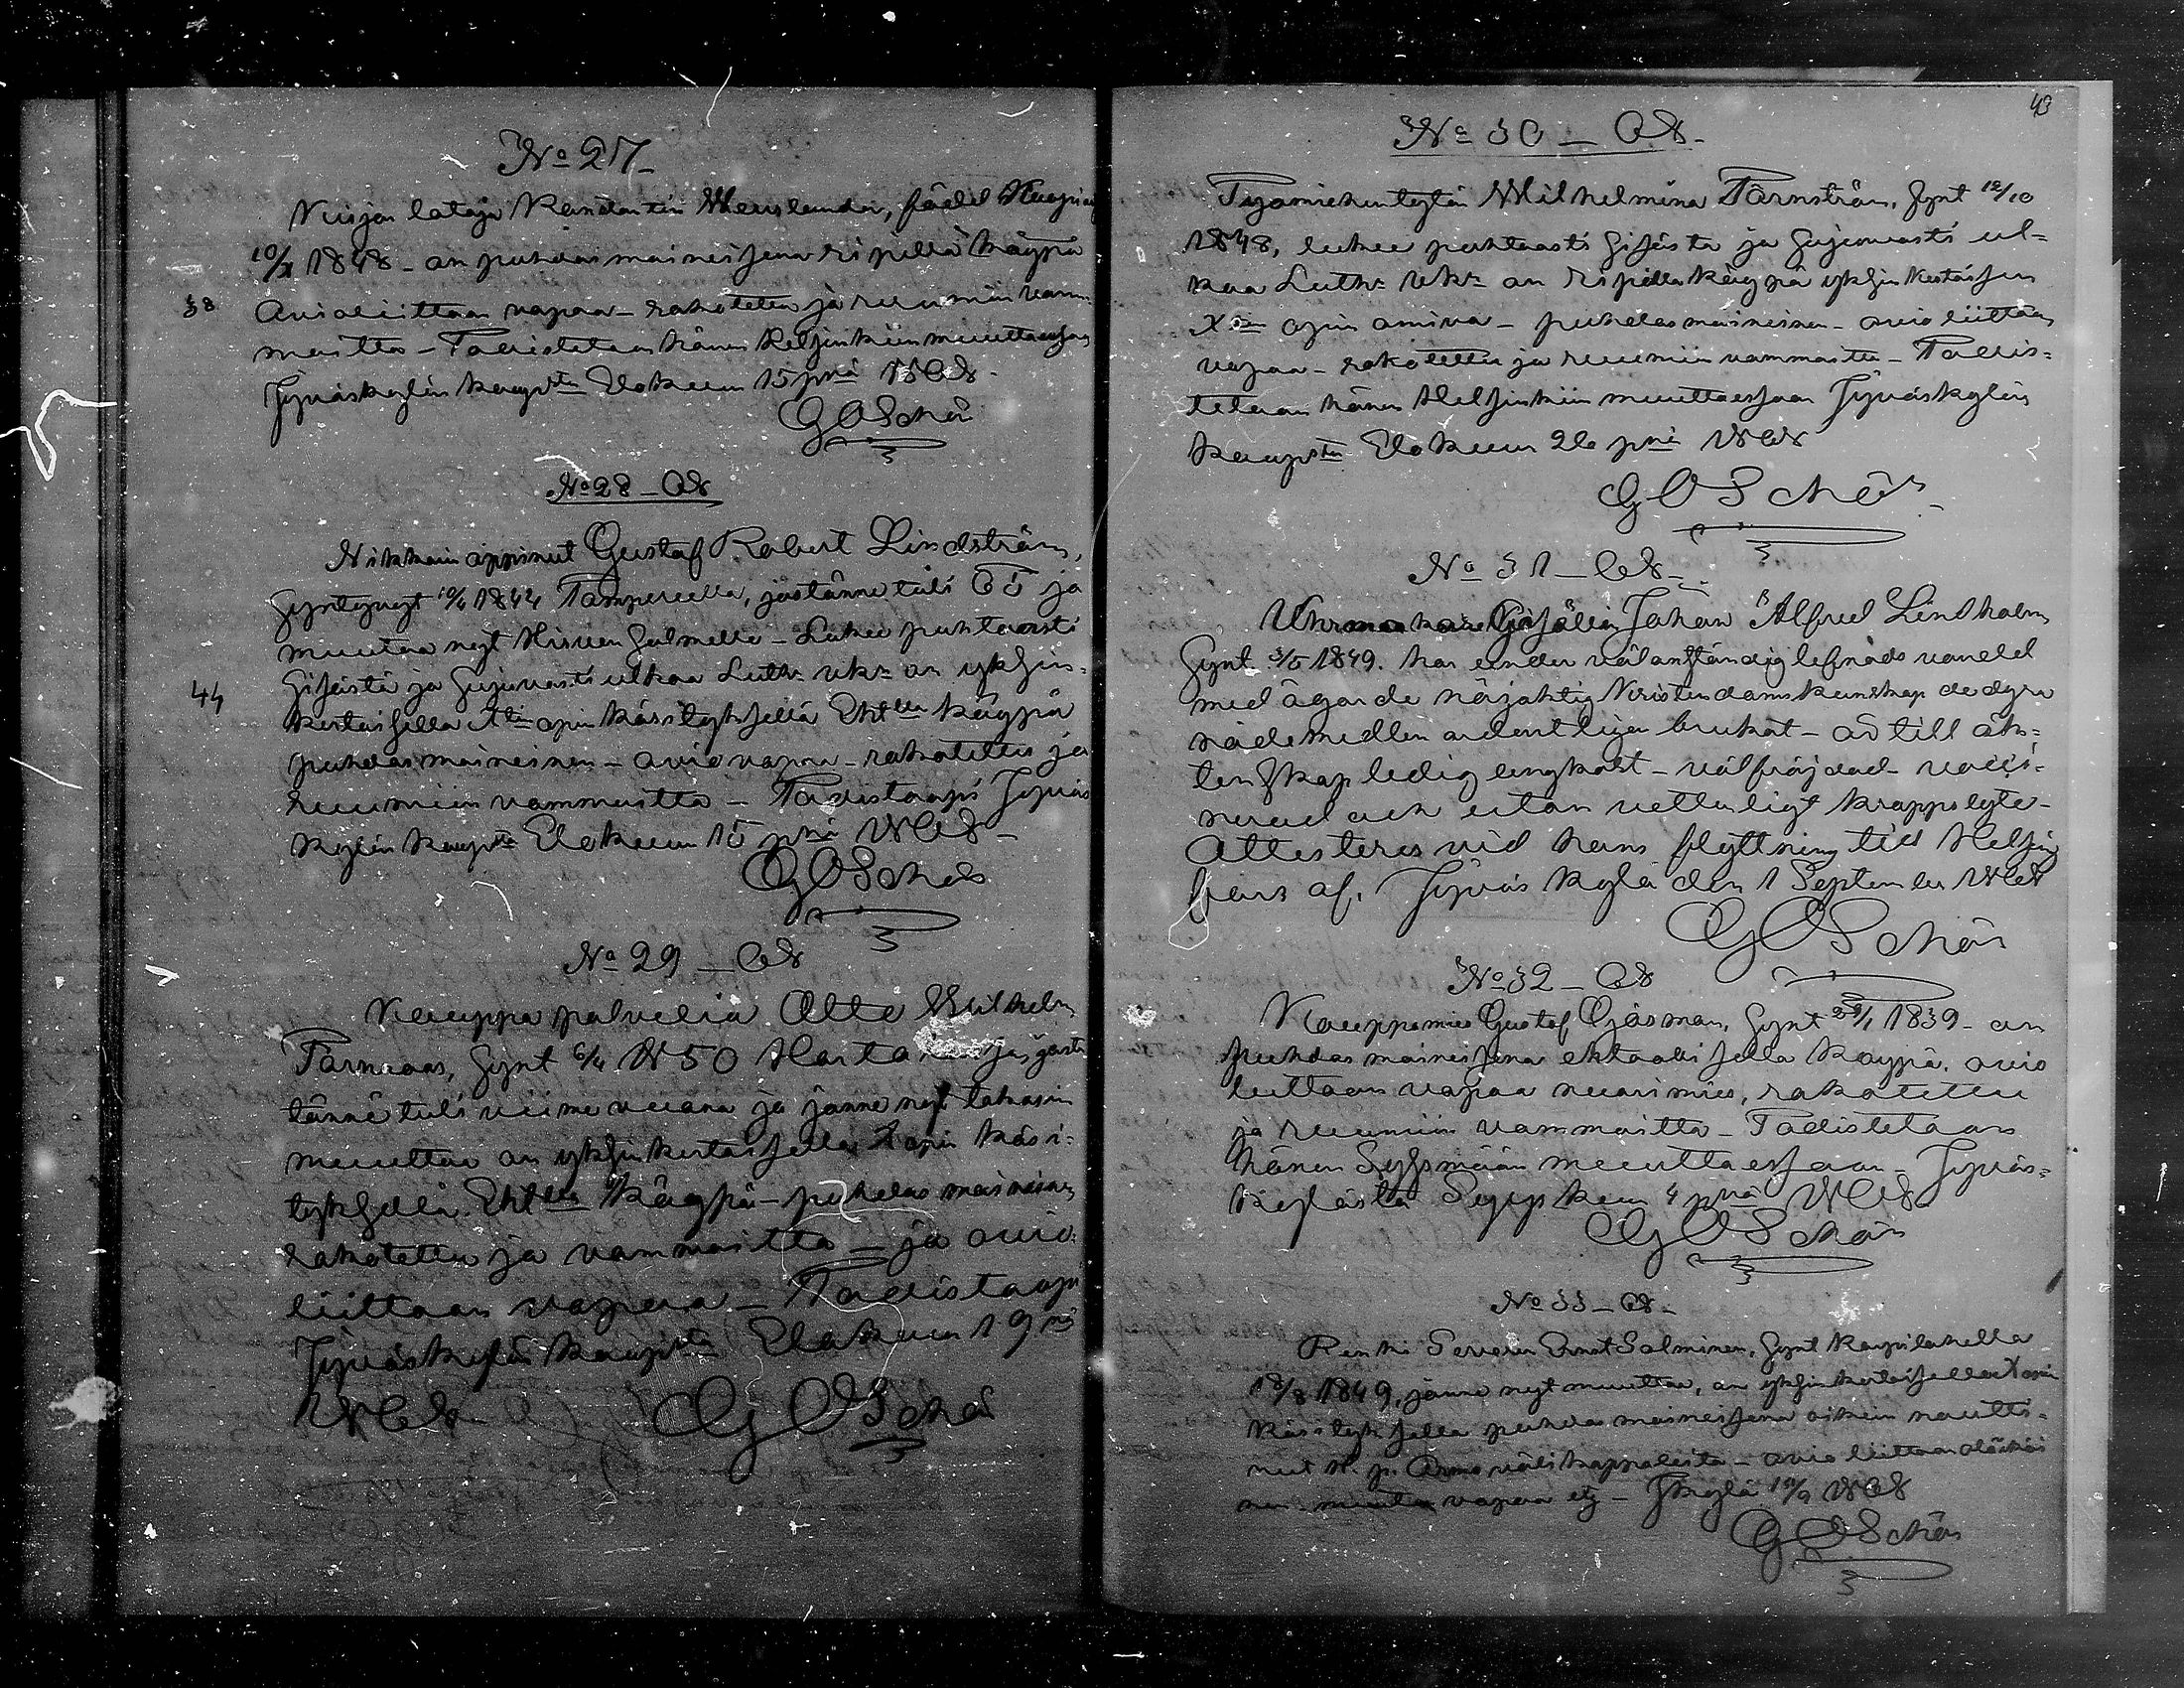 No 27
Kirjan lataja Konstantin Werslander, född Kuopio
10/X 1848 - on puhdasmaineisena ripillä käypä
38
Avioliittoon vapaa - rokotettu ja ruumiin vam-
maitta - Todistetaan hänen Helsinkiin muuttaissa
Jyväskylän kaupsta Elokuun 15 pnä 1868.
GOSchön
No 28 - 68
Nikkarin oppinut Gustaf Robert Lindström,
Syntynyt 10/4 1844 Tampereella, josta tänne tuli 65 ja
muuttaa nyt Hirvensalmelle - Lukee puhtaasti
44
Sisästä ja Sujuvasti ulkoa Luth: vk: on yksin-
kertaisella Xtin opin käsityksellä Ehtlla käypä
puhdasmaineinen - aviovapaa - rokotettu ja
ruumiin vammaitta - Todistaapi Jyväs
kylän kaupsta Elokuun 15 pnä 1868 -
GOSchön
No 29 - 68
Kauppapalvelia Otto Wilhelm
Törnroos, Synt 6/4 1850
tänne tuli viime vuonna ja jonne nyt takasin
muuttaa on yksinkertaisella X opin käsi-
tyksellä Ehtlla käypä - puhdasmaineinen
rokotettu ja vammaitta - ja avio-
liittoon vapaa - Todistaapi
Jyväskylän kaupsta Elokuun 19 nä
1868 GOSchön
43
No 30 - 68 -
Työmiehentytär Wilhelmina Törnström, Synt 12/10
1848, lukee puhtaasti Sisästä ja Sujuvasti ul-
koa Luth: vk: on ripillä käypä yksinkertaisen
X:n opin omiva - puhdasmaineinen - avioliittoon
vapaa - rokotettu ja ruumiin vammaitta - Todis-
tetaan hänen Helsinkiin muuttaessaan Jyväskylän
kaupsta Elokuun 26 pnä 1868
GOSchön
No 31 - 68 -
Uhrmakare Gesällen Johan Alfred Lindholm
Synt 3/5 1849. har under välanständig lefnads vandel
med ägande nöjaktig Kristendoms kunskap de dyra
nådemedlen ordentligen brukat - är till äk-
tenskap ledig ungkarl - välfräjdad - vacci-
nerad och utan vetterligt kroppslyte -
Attesteras vid hans flyttning till Helsing
fors af. Jyväskylä den 1 September 1868
GOSchön
No 32 - 68
Kauppamies Gustaf Öjösman, Synt 29/1 1839 - on
puhdasmaineisena ehtoollisella käypä, avio
liittoon vapaa nuorimies, rokotettu
ja ruumiin vammaitta - Todistetaan
hänen Sysmään muuttaessaan - Jyväs-
kylästä Syyskuun 4 pnä 1868
GOSchön
No 33 - 68 -
Renki Severin Ernst Salminen, Synt Korpilahella
18/8 1849, jonne nyt muuttaa, on yksinkertaisella X opin
käsityksellä puhdasmaineisena oikein nautti-
nut H. p. Armovälikappaleita - avioliittoon
vapaa etz - Jkylä 10/9 1868
GOSchön